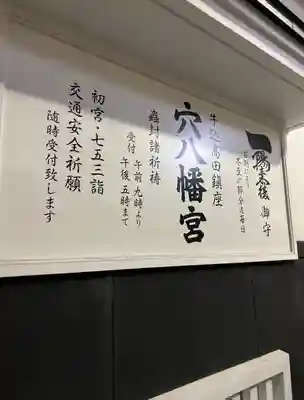 一陽来復 御守
冬至より節分迄毎日
牛込高田鎮座
穴八幡宮
蟲封諸祈祷
受付
午前九時より
午後五時まで
初宮・七五三詣
交通安全祈願
随時受付致します